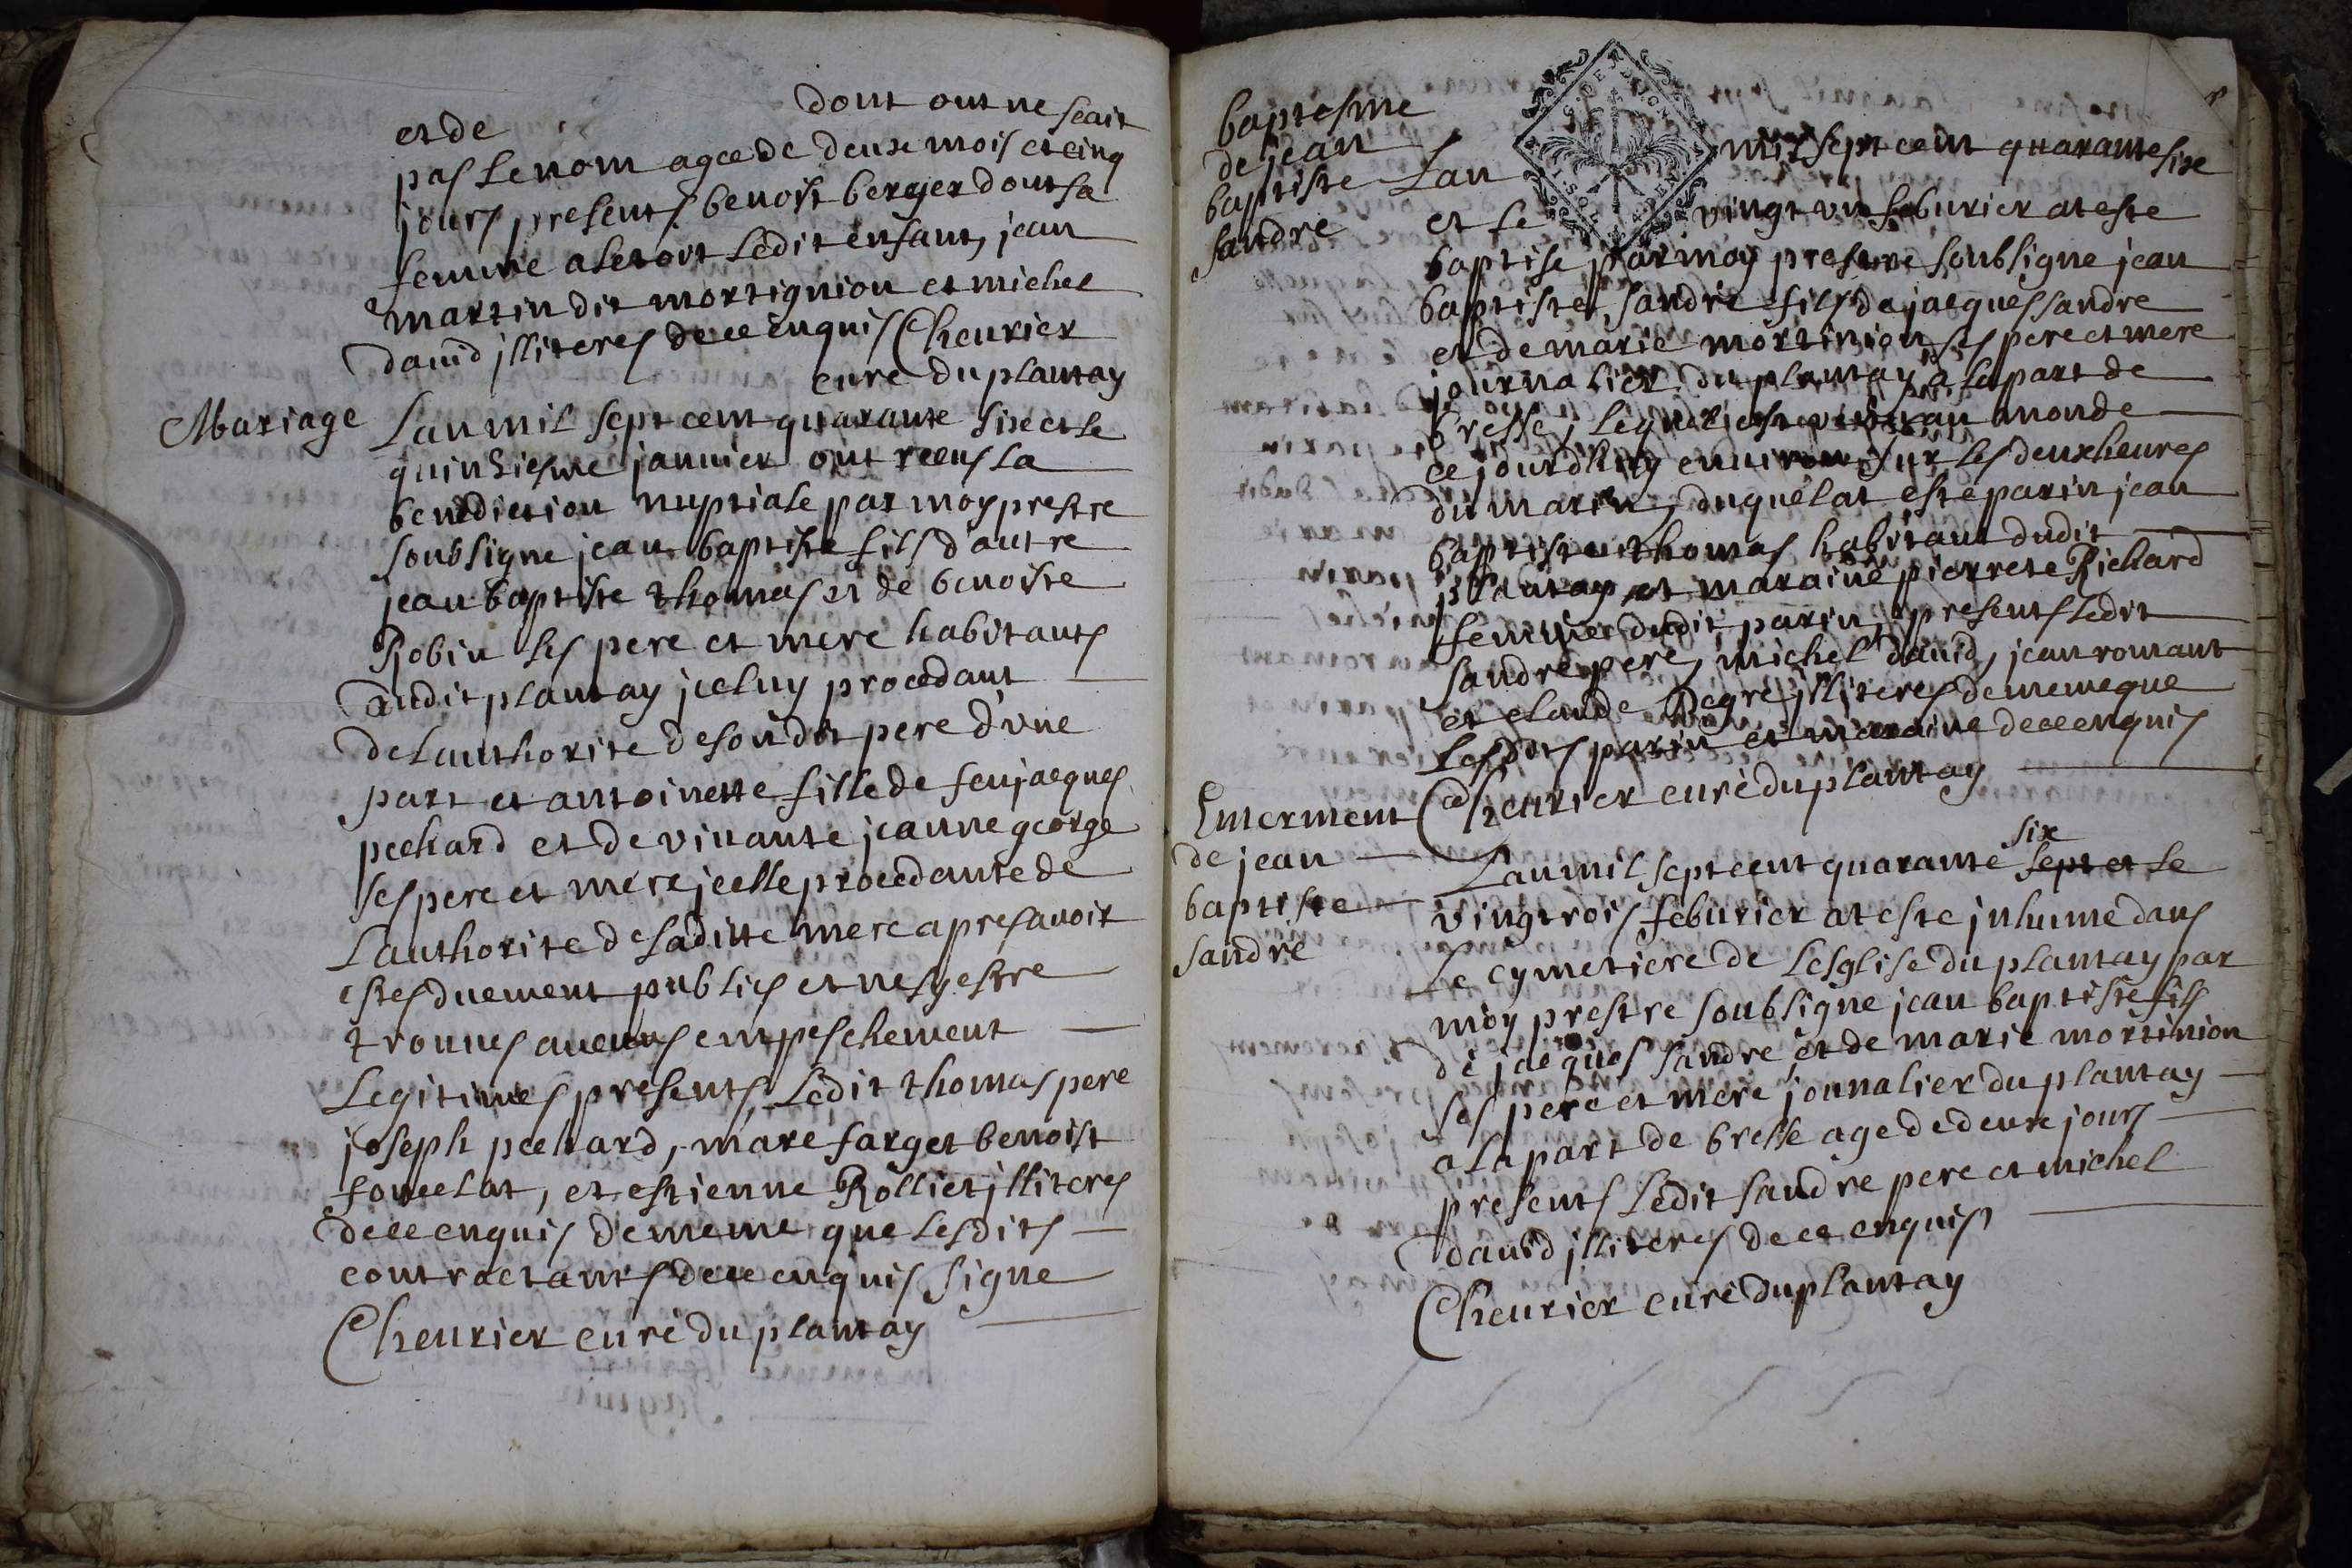 et de dont ont ne scait
pas le nom agee de deux mois et cinq
jours presents benoist berger dont sa
femme aletoit ledit enfant, jean
martin dit mortignion et michel
david jlliteres de ce enquis Cheurier
curé du plantay
Mariage
Lan mil sept cent quarante six et le
quinziesme janvier ont receus la
benediction nuptiale par moy prestre
soubsigne jean baptiste fils d'autre
jean baptiste thomas et de benoiste
Robin ses pere et mere habitants
audit plantay jceluy procedant
de lauthorite de son dit pere d'vne
part et antoinette fille de feu jacques
pechard et de vivante jeanne george
ses pere et mere jcelle procedante de
Lauthorite de saditte mere apres avoir
estes duement publies et ne sy estre
trouues aucuns empeschement
Legitimes presents Ledit thomas pere
joseph pechard, marc farget benoist
fouuelat, et estienne Rollier jlliteres
de ce enquis de meme que lesdits
contractants de ce enquis signe
Cheurier curé du plantay
baptesme
de jean
baptiste
sandre
Lan mil sept cent quarante six
et le vingt vn feburier at este
baptise par moy prestre soubsigne jean
baptiste sandre fils de jacques sandre
et de marie mortinion ses pere et mere
journalier du plantay a la part de
bresse, lequel est venu au monde
ce jourdhuy enuiron sur les deux heures
du matin, duquel at este parin jean
baptiste thomas habitant dudit
plantay et maraine pierrete Richard
femme dudit parin, presents ledit
sandre pere, michel david, jean romant
et claude Degre jlliteres de meme que
lesdits parin et maraine de ce enquis
Cheurier curé du plantay
Enterment
de jean
baptiste
sandre
Lan mil sept cent quarante six sept et le
vingtrois feburier at este jnhumé dans
le cymetiere de Lesglise du plantay par
moy prestre soubsigne jean baptiste fils
de jacques sandre et de marie mortinion
ses pere et mere jounalier du plantay
a la part de bresse age de deux jours
presents ledit sandre pere et michel
david jlliteres de ce enquis
Cheurier curé du plantay